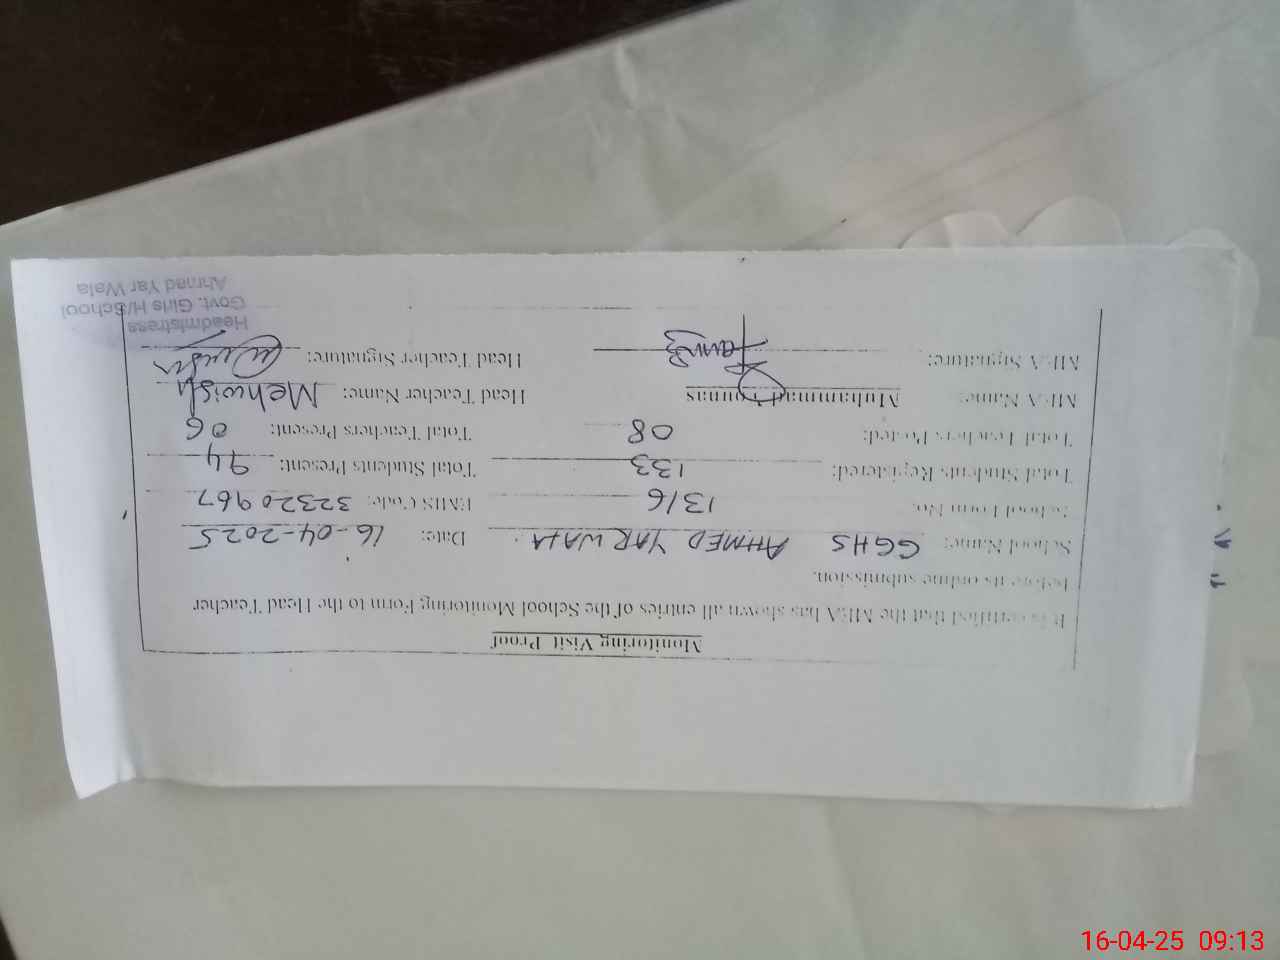 Monitoring Visit Proof
It is certified that the MEA has shown all entries of the School Monitoring Form to the Head Teacher
before its online submission.
School Name: GGHS AHMED YAR WALA. Date: 16-04-2025
School Form No: 1316 EMIS Code: 32320967
Total Students Registered: 133 Total Students Present: 94
Total Teachers Posted: 08 Total Teachers Present: 06
MEA Name: Muhammad Younas Head Teacher Name: Mehwish
MEA Signature: Head Teacher Signature:
Headmistress
Govt. Girls H/School
Ahmad Yar Wala
16-04-25 09:13